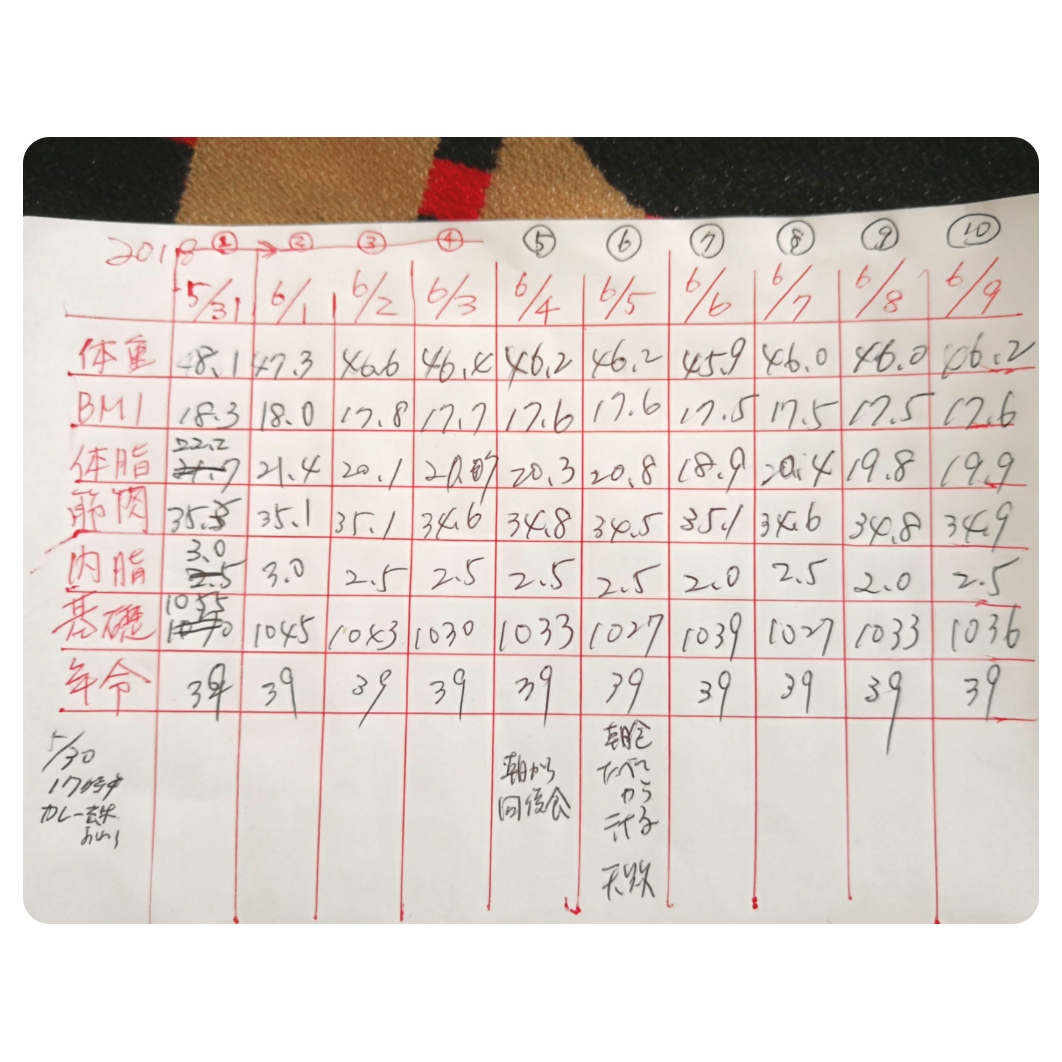 2018 ① ② ③ ④ ⑤ ⑥ ⑦ ⑧ ⑨ ⑩
5/31 6/1 6/2 6/3 6/4 6/5 6/6 6/7 6/8 6/9
体重 48.1 47.3 46.6 46.4 46.2 46.2 45.9 46.0 46.0 46.2
BMI 18.3 18.0 17.8 17.7 17.6 17.6 17.5 17.5 17.5 17.6
22.2
体脂 21.7 21.4 20.1 20.3 20.8 18.9 20.4 19.8 19.9
筋肉 35.1 35.1 34.6 34.8 34.5 35.1 34.6 34.8 34.9
3.0
内脂 2.5 3.0 2.5 2.5 2.5 2.5 2.0 2.5 2.0 2.5
1055
基礎 1045 1043 1030 1033 1027 1039 1027 1033 1036
年令 39 39 39 39 39 39 39 39 39 39
5/30
17時半
カレー
朝から
回復食
朝食
たべて
から
計る